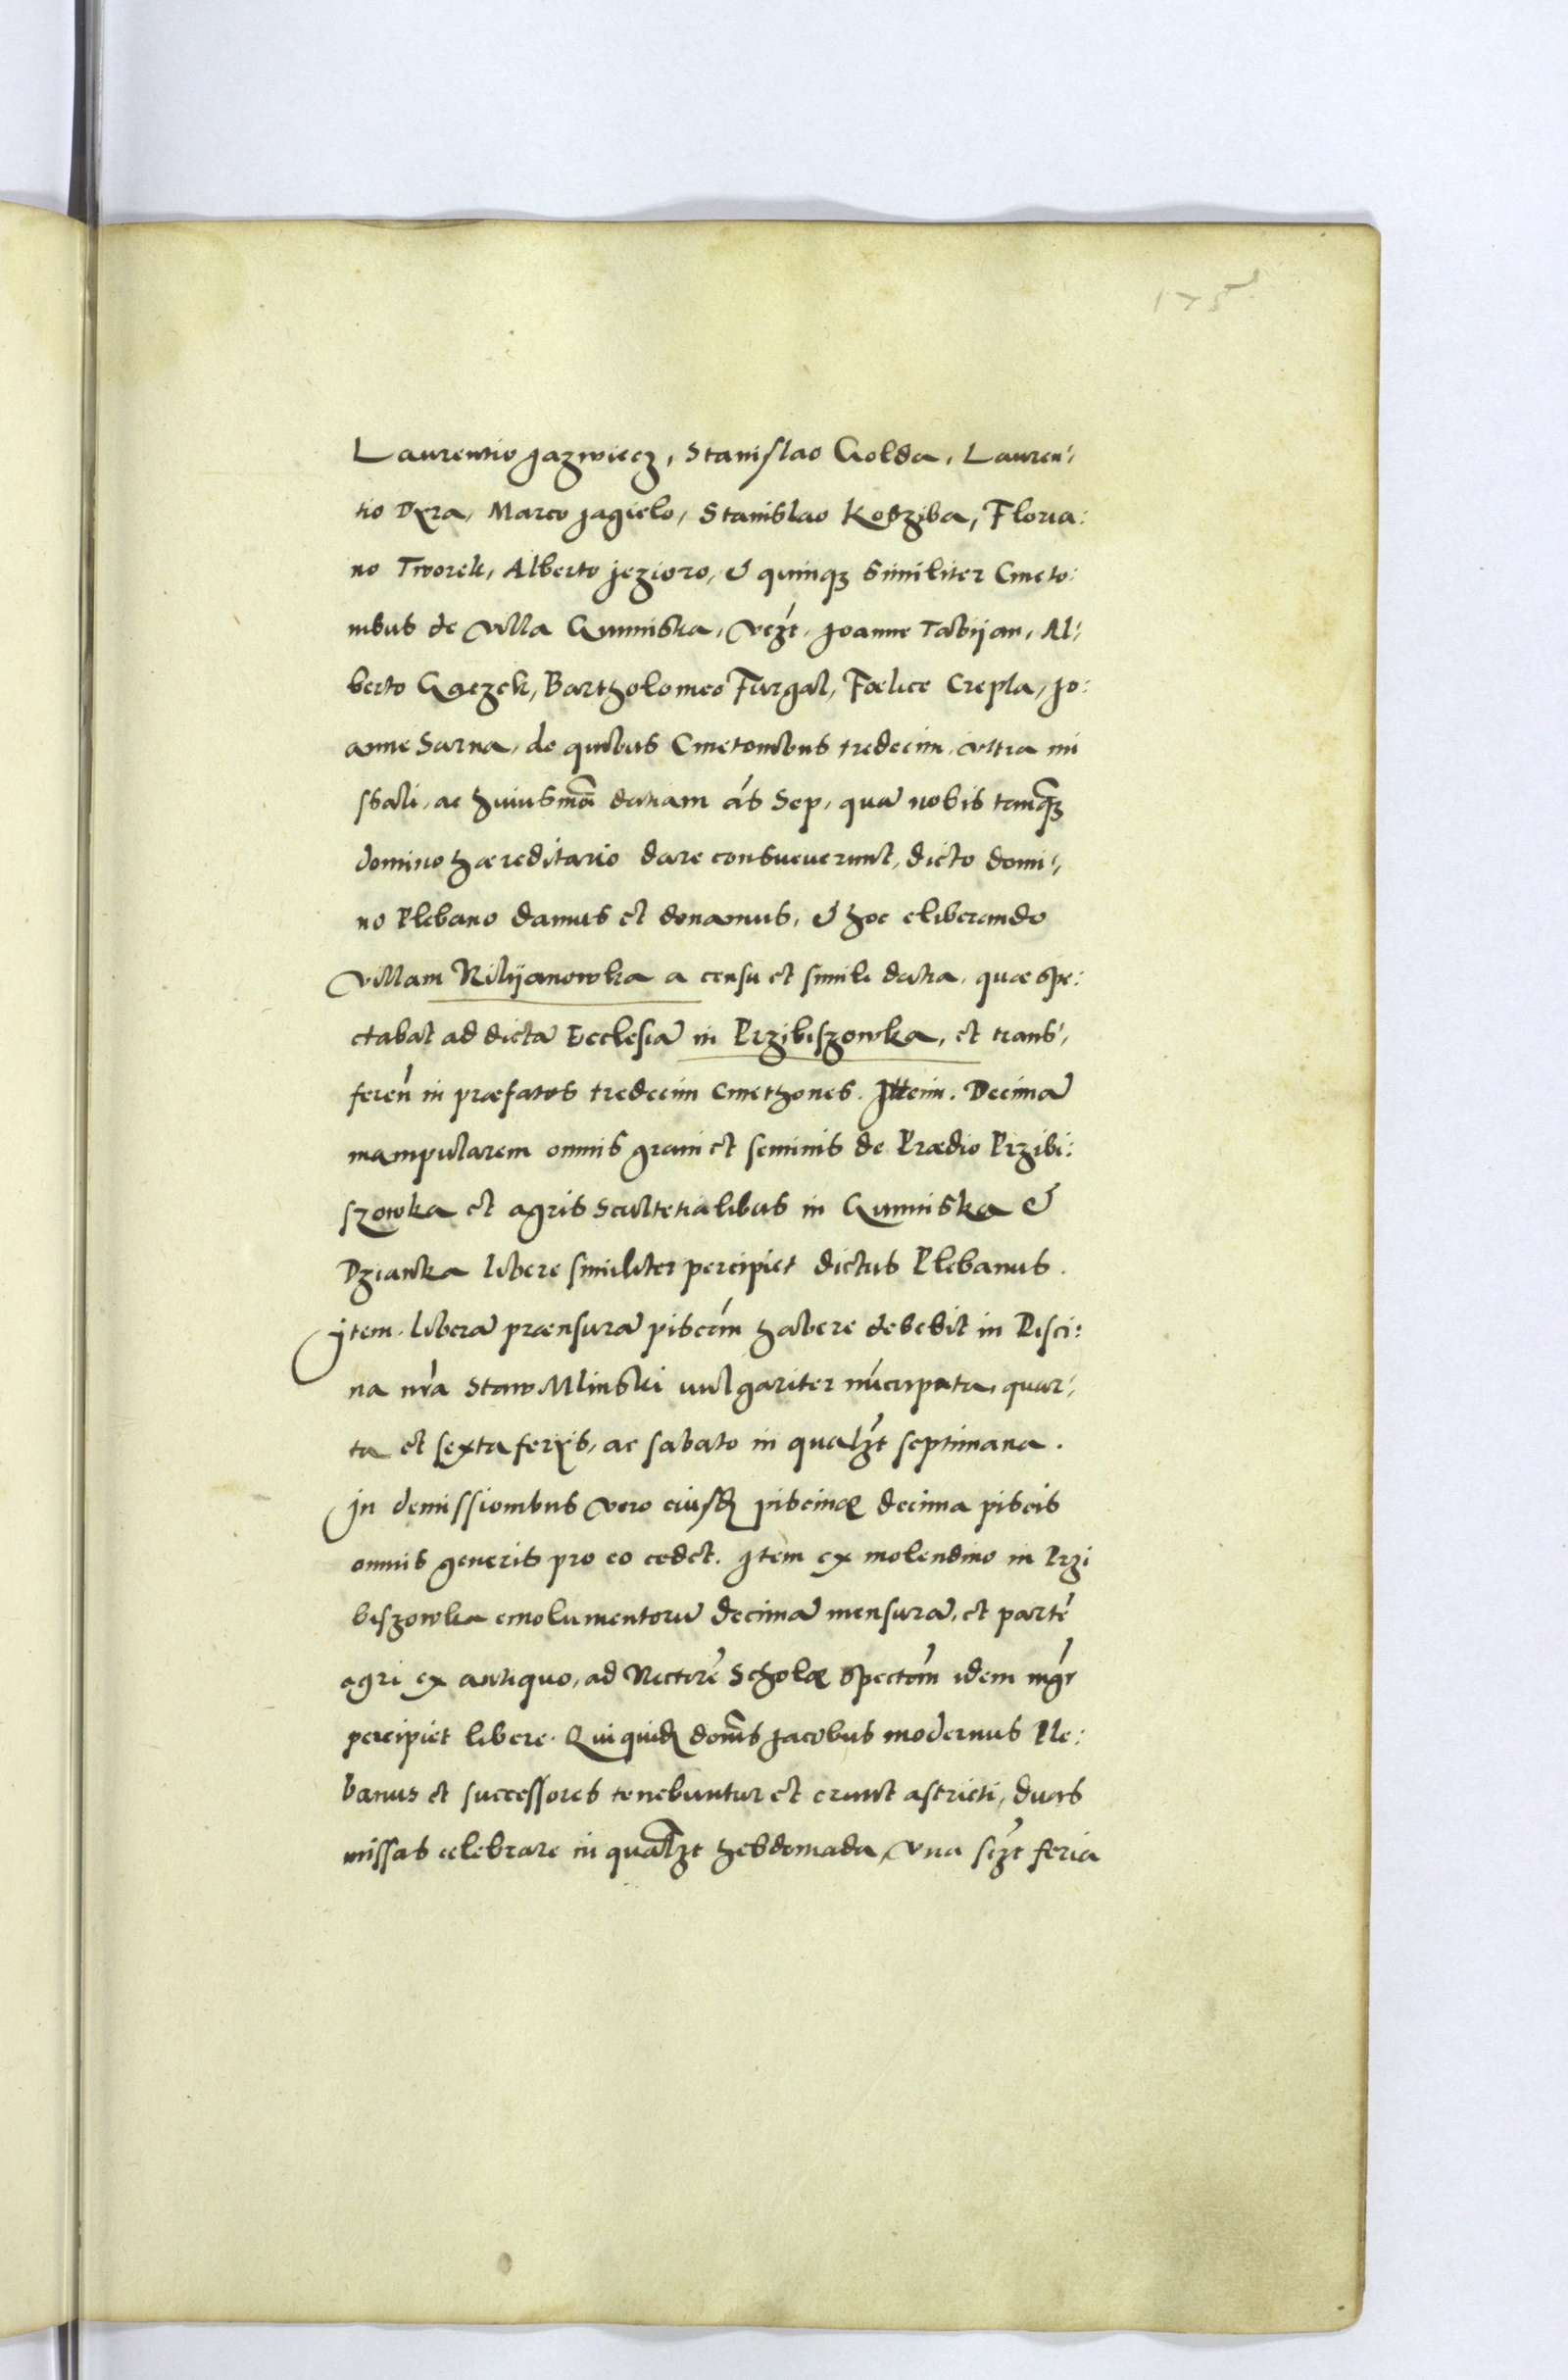 175
Laurentio Jazwiecz, Stanislao Golda, Lauren,
tio Dyra, Marco Jagielo, Stanislao Kosziba, Floria:
no Tworek, Alberto Jezioro, & quinqz similiter Cmeto:
nibus de Villa Gumniska, vczt. Joanne Tabijan, Al,
berto Gaczek, Bartholomeo Furgal, Foelice Crepla, Jo:
anne Sarna, de quibus Cmetonibus tredecim, vltra mi
ssali, ac huiusmoi datiam sep, quā nobis tamqz
domino haereditario dare consueuerunt, dicto domi,
no Plebano damus et donamus, & hoc eliberando
Villam Rilijanowka a censu et simili datia, quae spe:
ctabat ad dictā Ecclesiā in Przibiszowka, et trans,
feren in praefatos tredecim Cmethones. Ittem. Decimā
manipularem omnis grani et seminis de Praedio Przibi:
szowka et agris Scultetialibus in Gumniska &
Dzianka libere similiter percipiet dictus Plebanus.
Item. liberā praensurā piscim habere debebit in Pisci:
na nrā Staw Mlinski uulgariter nūcupata, quar,
ta et sexta ferijs, ac sabato in qualzt septimana.
In demissionibus vero eiusd piscinae decima piscis
omnis generis pro eo cedet. Item ex molendino in Przi
biszowka emolumentorū decimā mensurā, et partē
agri ex antiquo, ad Rectorē Scholae spectan idem mgr
percipiet libere. Qui quid doms Jacobus modernus Ple:
banus et successores tenebuntur et erunt astricti, duas
missas celebrare in qualzt hebdomada, vna sczt feria